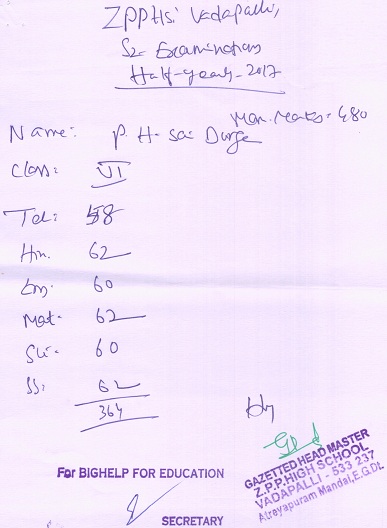 ZPPHS: Vadapalli,
S2 Examinations
Half-yearly-2017
Max. Marks: 480
Name: P. H. Sai Durga
Class: VI
Tel: 58
Hin. 62
Eng. 60
Mat. 62
Sci. 60
SS: 62
364
GAZETTED HEAD MASTER
Z.P.P.HIGH SCHOOL
VADAPALLI - 533 237
Atreyapuram Mandal, E.G.Dt.
For BIGHELP FOR EDUCATION
SECRETARY